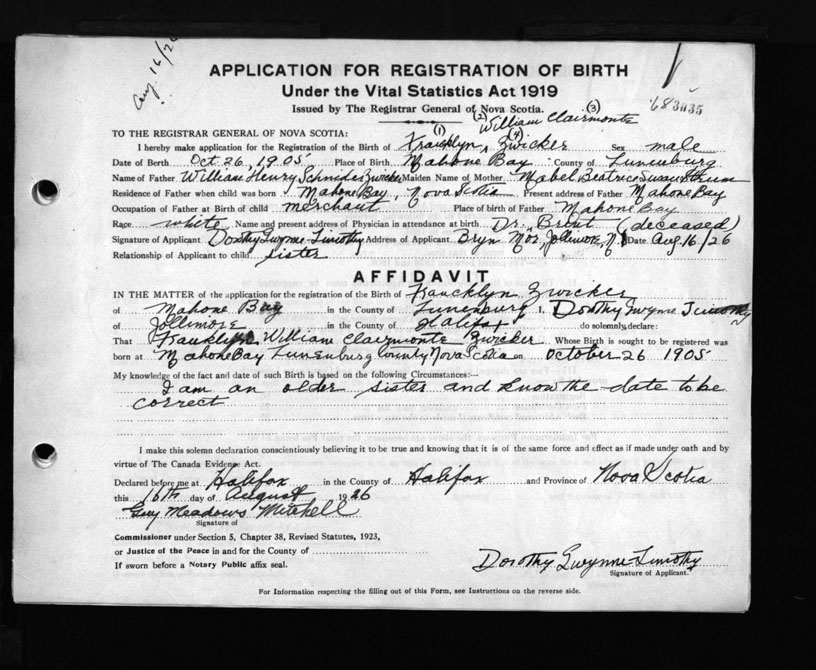 Aug. 16/26
APPLICATION FOR REGISTRATION OF BIRTH
Under the Vital Statistics Act 1919
Issued by The Registrar General of Nova Scotia.
683035
(2) William Clairmonte (3)
TO THE REGISTRAR GENERAL OF NOVA SCOTIA: (1) (4)
I hereby make application for the Registration of the Birth of Francklyn ^ Zwicker Sex male
Date of Birth Oct. 26, 1905 Place of Birth Mahone Bay County of Lunenburg
Name of Father William Henry Schnider Zwicker Maiden Name of Mother Mabel Beatrice Swan Strum
Residence of Father when child was born Mahone Bay, Nova Scotia Present address of Father Mahone Bay
Occupation of Father at Birth of child merchant Place of birth of Father Mahone Bay
Race white Name and present address of Physician in attendance at birth Dr. Brent (deceased)
Signature of Applicant Dorothy Gwynne-Timothy Address of Applicant Bryn Mor, Jollimore, N.S Date Aug. 16/26
Relationship of Applicant to child sister
AFFIDAVIT
IN THE MATTER of the application for the registration of the Birth of Francklyn Zwicker
of Mahone Bay in the County of Lunenburg I, Dorothy Gwynne Timothy
of Jollimore in the County of Halifax do solemnly declare:
That Francklyn William Clairmonte Zwicker Whose Birth is sought to be registered was
born at Mahone Bay Lunenburg County Nova Scotia on October 26 1905
My knowledge of the fact and date of such Birth is based on the following Circumstances:—
I am an older sister and know the date to be
correct
I make this solemn declaration conscientiously believing it to be true and knowing that it is of the same force and effect as if made under oath and by
virtue of The Canada Evidence Act.
Declared before me at Halifax in the County of Halifax and Province of Nova Scotia
this 16th day of August 1926
Guy Meadows Mitchell
Signature of
Commissioner under Section 5, Chapter 38, Revised Statutes, 1923,
or Justice of the Peace in and for the County of
If sworn before a Notary Public affix seal.
Dorothy Gwynne-Timothy
Signature of Applicant.
For Information respecting the filling out of this Form, see Instructions on the reverse side.